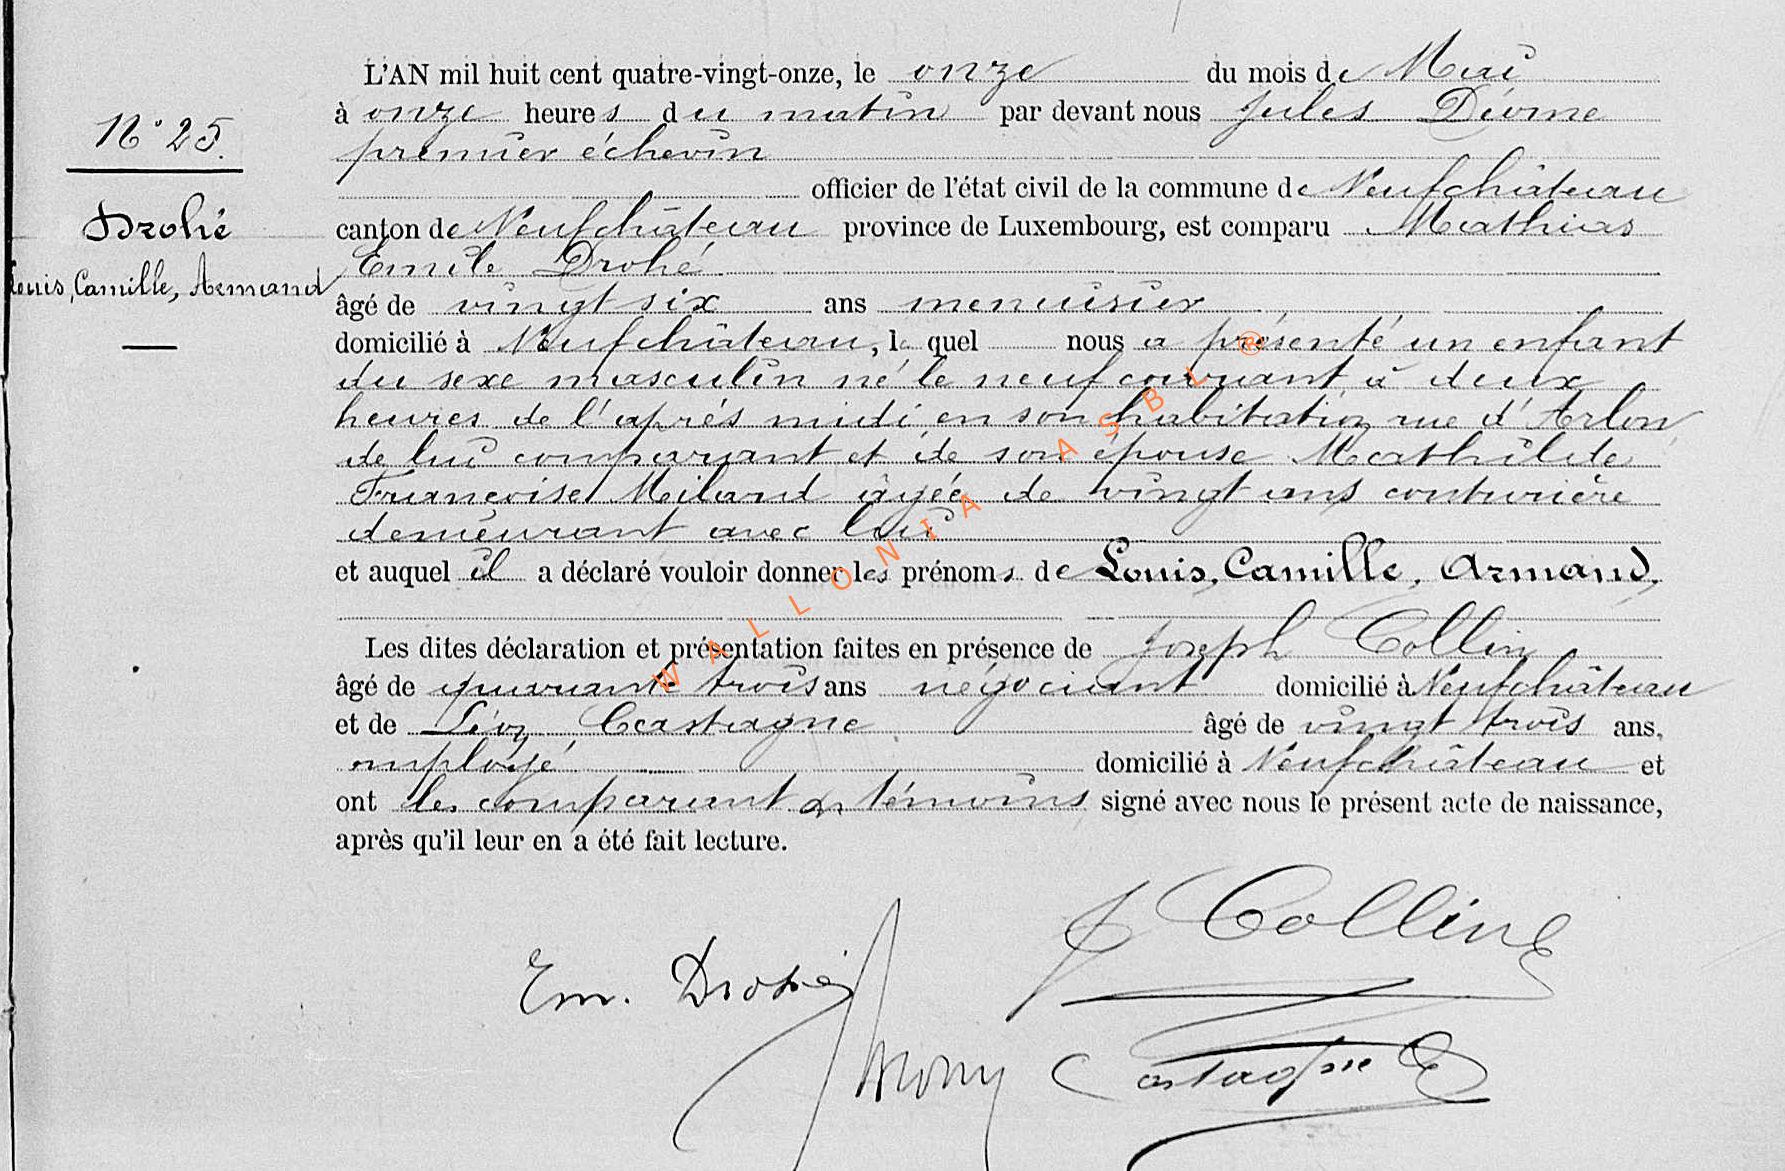 L'AN mil huit cent quatre-vingt-onze, le onze du mois de Mai
à onze heures du matin par devant nous Jules
N° 25.
premier échevin
officier de l'état civil de la commune de Neufchâteau
Drohé
canton de Neufchâteau province de Luxembourg, est comparu Mathias
Emile Drohé
Louis, Camille, Armand
âgé de vingt six ans menuisier
domicilié à Neufchâteau, le quel nous a présenté un enfant
du sexe masculin né le neuf courant à deux
heures de l'après midi en son habitation rue d'Arlon
de lui comparant et de son épouse Mathilde
Françoise Milard âgée de vingt ans couturière
demeurant avec lui
et auquel il a déclaré vouloir donner les prénoms de Louis, Camille, Armand,
Les dites déclaration et présentation faites en présence de Joseph Collin
âgé de quarante trois ans négociant domicilié à Neufchâteau
et de Léon Castagne âgé de vingt trois ans,
employé domicilié à Neufchâteau et
ont les comparant et témoins signé avec nous le présent acte de naissance,
après qu'il leur en a été fait lecture.
J Collin
Em. Drohé
Castagne
WALLONIA ASBL ®